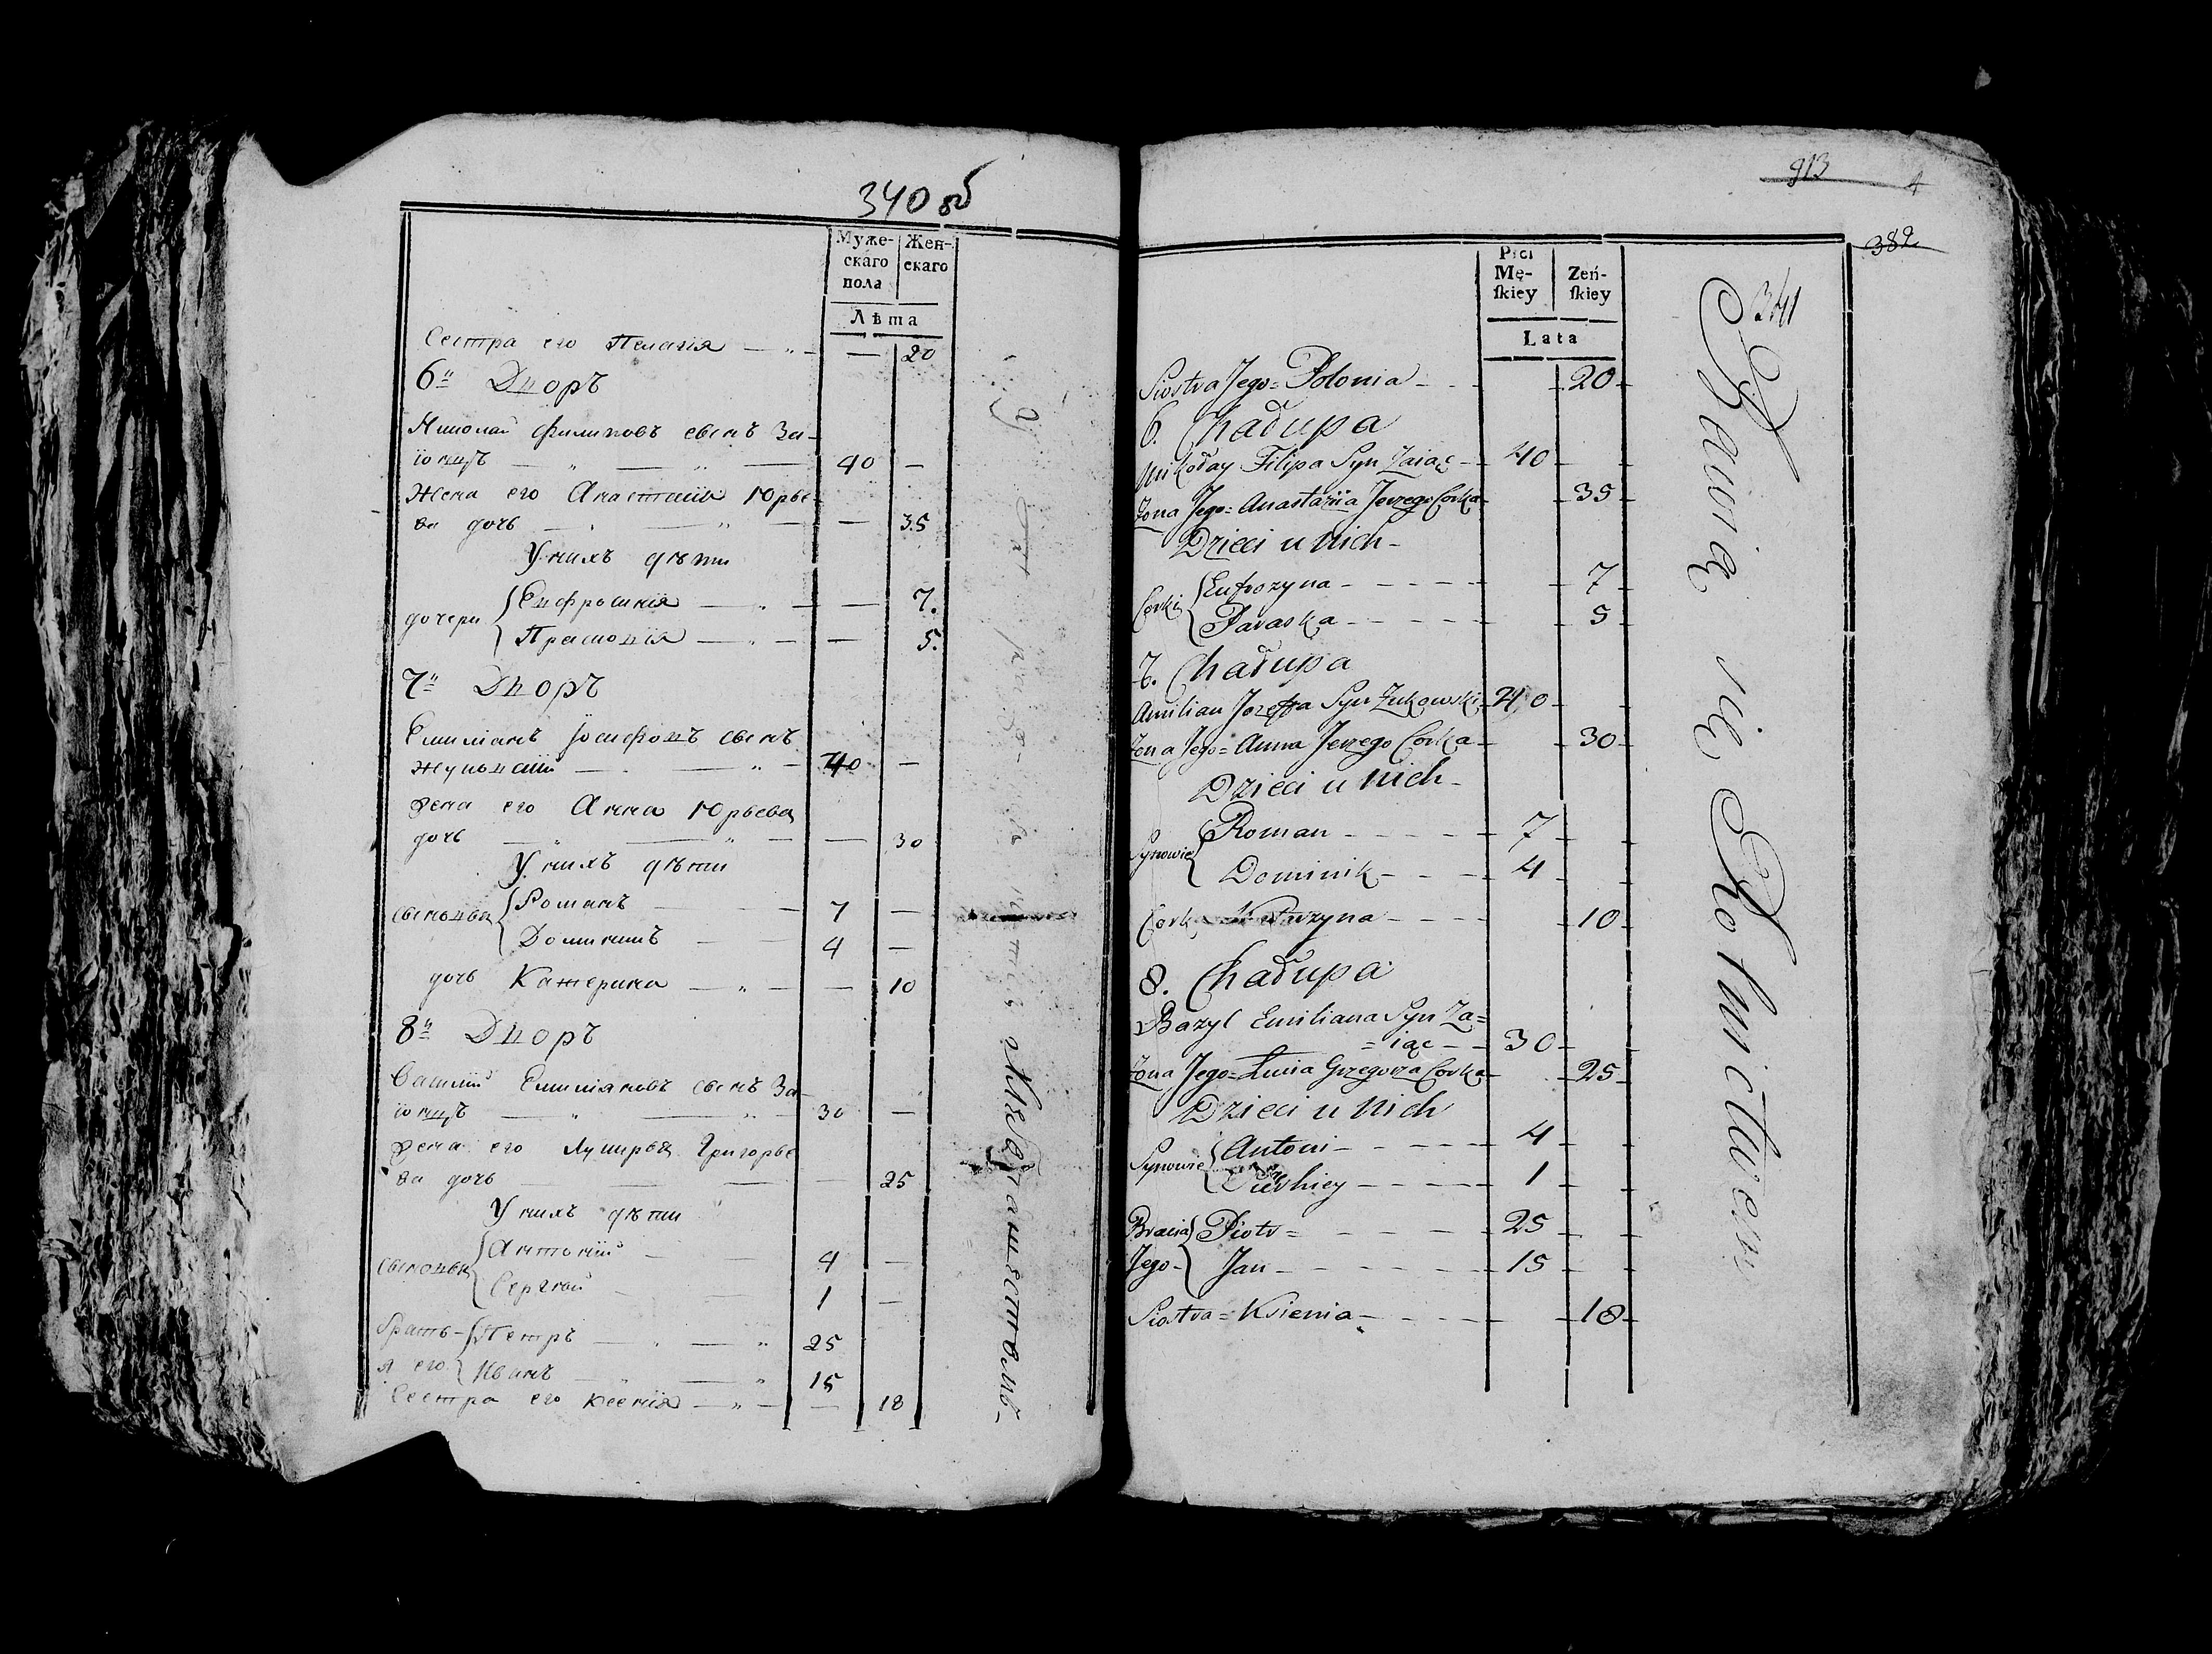 340 об
Муже-
скаго
пола
Жен-
скаго
Лѣта
Сестра его Пелагія — 20
6й Дворъ
Николай Филиповъ сынъ За-
іонцъ — 40 —
Жена его Анастасія Юрье-
ва дочь — 35
У нихъ дѣти
дочери Евфросинія — 7.
Прасковія — 5.
7й Дворъ
Емиліанъ Іосифовъ сынъ
Жуковскій — 40 —
Жена его Анна Юрьева
дочь — 30
У нихъ дѣти
сыновья Романъ 7 —
Доминикъ 4 —
дочь Катерина — 10
8й Дворъ
Василій Емиліановъ сынъ За-
іонцъ — 30 —
Жена его Лукирья Григорье
ва дочь — 25
У нихъ дѣти
сыновья Антоній 4 —
Сергѣй 1 —
Брать- Петръ 25
я его Иванъ 15
Сестра его Ксенія — 18
Хлѣбопашествомъ
913
4
382
341
Płci
Mę-
skiey
Zeń-
skiey
Lata
Siostra Jego = Polonia - - 20
6. Chałupa
Mikołay Filipa Syn Zaiąc - 40
Żona Jego = Anastazija Jerzego Corka 35
Dzieci u Nich -
Corki Eufrozyna - - - - 7
Paraska - - - - 5
7. Chałupa
Amilian Jozefa Syn Żukowski 40
Żona Jego = Anna Jerzego Corka - 30
Dzieci u Nich -
Synowie Roman - - - - 7
Dominik - - - 4
Corka Katarzyna - - - 10
8. Chałupa
Bazyl Emiliana Syn Za=
= iąc - - 30
Żona Jego = Lucia Grzegorza Corka 25
Dzieci u Nich
Synowie Antoni - - - - 4
- - - - 1
Bracia Piotr = - - - 25
Jego - Jan - - - - 15
Siostra = Ksienia - - - - 18
Bawią się Rolnictwem